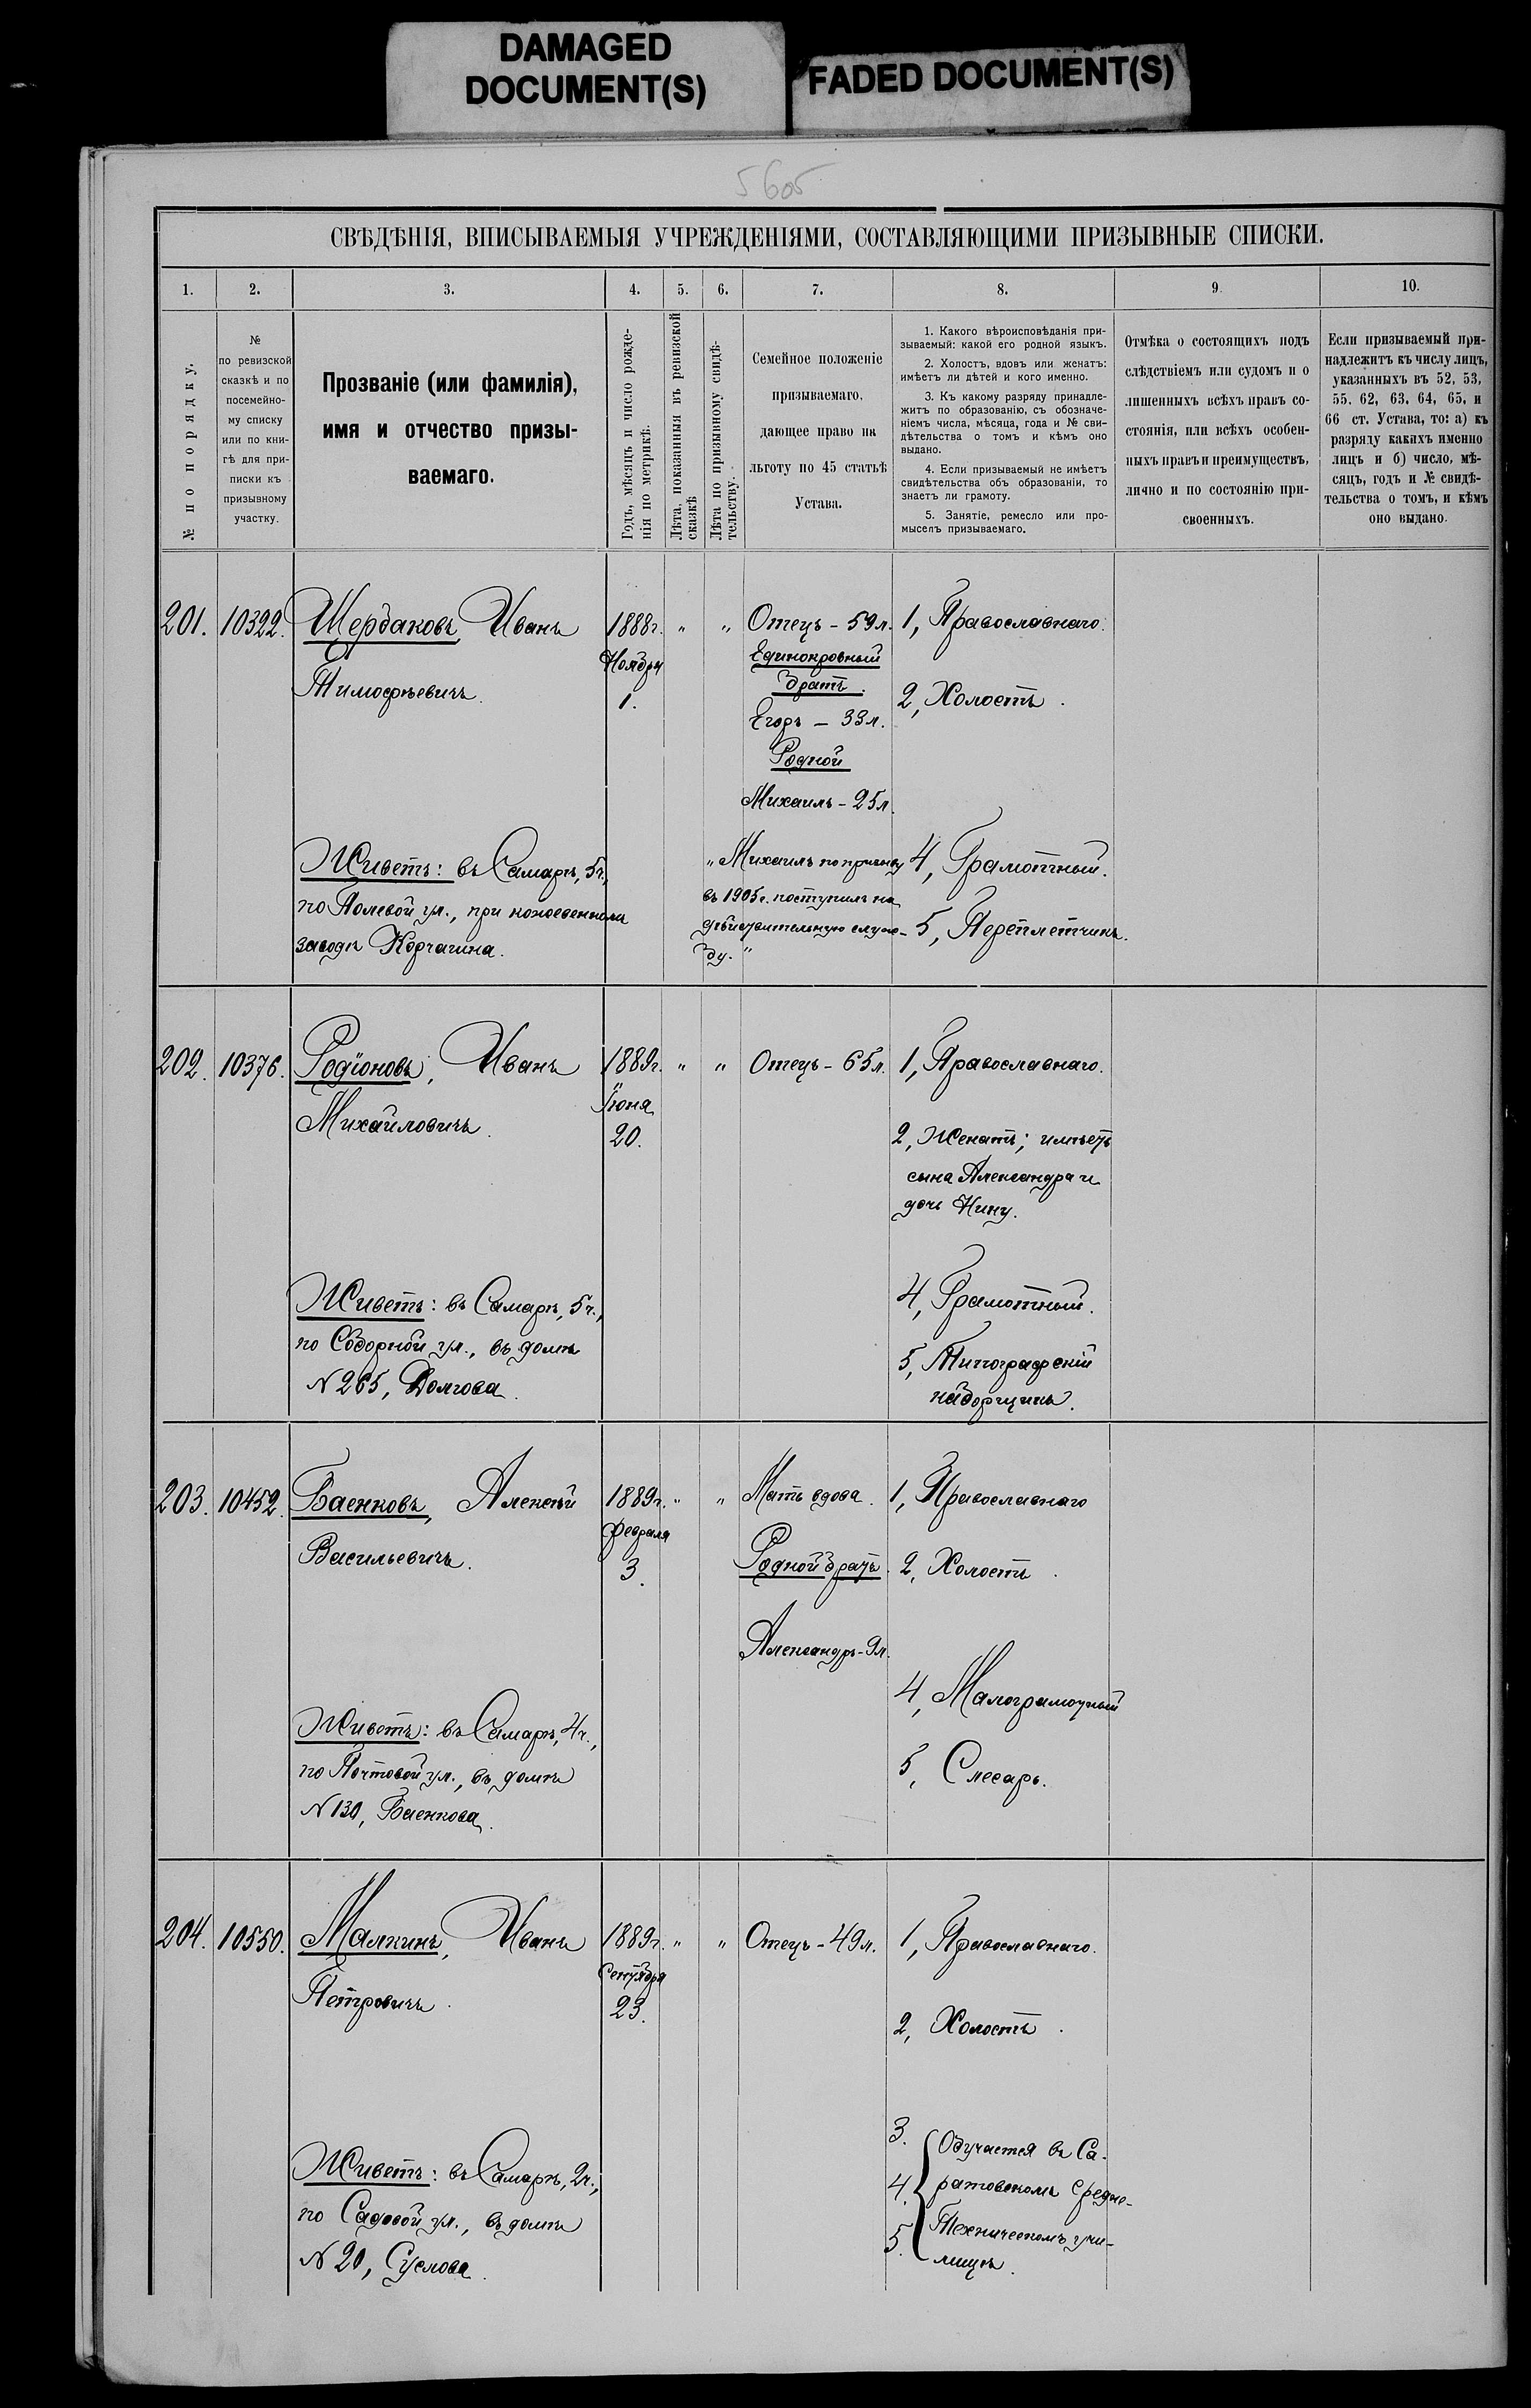 DAMAGED
DOCUMENT(S)
FADED DOCUMENT(S)
5605
СВѢДѢНІЯ, ВПИСЫВАЕМЫЯ УЧРЕЖДЕНІЯМИ, СОСТАВЛЯЮЩИМИ ПРИЗЫВНЫЕ СПИСКИ.
1.
2.
3.
4.
5.
6.
7.
8.
9.
10.
№ по порядку.
№
по ревизской
сказкѣ и по
посемейно-
му списку
или по кни-
гѣ для при-
писки къ
призывному
участку.
Прозваніе (или фамилія),
имя и отчество призы-
ваемаго.
Годъ, мѣсяцъ и число рожде-
нія по метрикѣ.
Лѣта, показанныя въ ревизской
сказкѣ
Лѣта по призывному свидѣ-
тельству.
Семейное положеніе
призываемаго,
дающее право на
льготу по 45 статьѣ
Устава.
1. Какого вѣроисповѣданія при-
зываемый: какой его родной языкъ.
2. Холостъ, вдовъ или женатъ:
имѣетъ ли дѣтей и кого именно.
3. Къ какому разряду принадле-
житъ по образованію, съ обозначе-
ніемъ числа, мѣсяца, года и № сви-
дѣтельства о томъ и кѣмъ оно
выдано.
4. Если призываемый не имѣетъ
свидѣтельства объ образованіи, то
знаетъ ли грамоту.
5. Занятіе, ремесло или про-
мыселъ призываемаго.
Отмѣка о состоящихъ подъ
слѣдствіемъ или судомъ и о
лишенныхъ всѣхъ правъ со-
стоянія, или всѣхъ особен-
ныхъ правъ и преимуществъ,
лично и по состоянію при-
своенныхъ.
Если призываемый при-
надлежитъ къ числу лицъ,
указанныхъ въ 52, 53,
55, 62, 63, 64, 65, и
66 ст. Устава, то: а) къ
разряду какихъ именно
лицъ и б) число, мѣ-
сяцъ, годъ и № свидѣ-
тельства о томъ, и кѣмъ
оно выдано.
201. 10322. Щербаковъ, Иванъ
Тимофѣевичъ.
1888г.
Ноября
1.
" "
Отецъ - 59л.
Единокровный
братъ.
Егоръ - 33л.
Родной
Михаилъ - 25л.
"Михаилъ по призыву
въ 1905г. поступилъ на
дѣйствительную служ-
бу."
1, Православнаго.
2, Холостъ.
4, Грамотный.
5, Переплетчикъ.
Живетъ: въ Самарѣ, 5ч.,
по Полевой ул., при кожевенномъ
заводѣ Корчагина.
202. 10376. Родіоновъ, Иванъ
Михайловичъ.
1889г.
Іюня
20.
" "
Отецъ - 65л.
1, Православнаго.
2, Женатъ; имѣетъ
сына Александра и
дочь Нину.
4, Грамотный.
5, Типографскій
наборщикъ.
Живетъ: въ Самарѣ, 5ч.,
по Соборной ул., въ домѣ
N 265, Долгова.
203. 10452. Баенковъ, Алексѣй
Васильевичъ.
1889г.
Февраля
3.
" "
Мать вдова.
Родной братъ.
Александръ - 9л.
1, Православнаго
2, Холостъ.
4, Малограмотный
5, Слесарь.
Живетъ: въ Самарѣ, 4ч.,
по Почтовой ул., въ домѣ
N 130, Баенкова.
204. 10550. Малкинъ, Иванъ
Петровичъ.
1889г.
Сентября
23.
" "
Отецъ - 49л.
1, Православнаго.
2, Холостъ.
3.
4.
5.
Обучается въ Са-
ратовскомъ Средне-
Техническомъ учи-
лищѣ.
Живетъ: въ Самарѣ, 2ч.,
по Садовой ул., въ домѣ
N 20, Суслова.